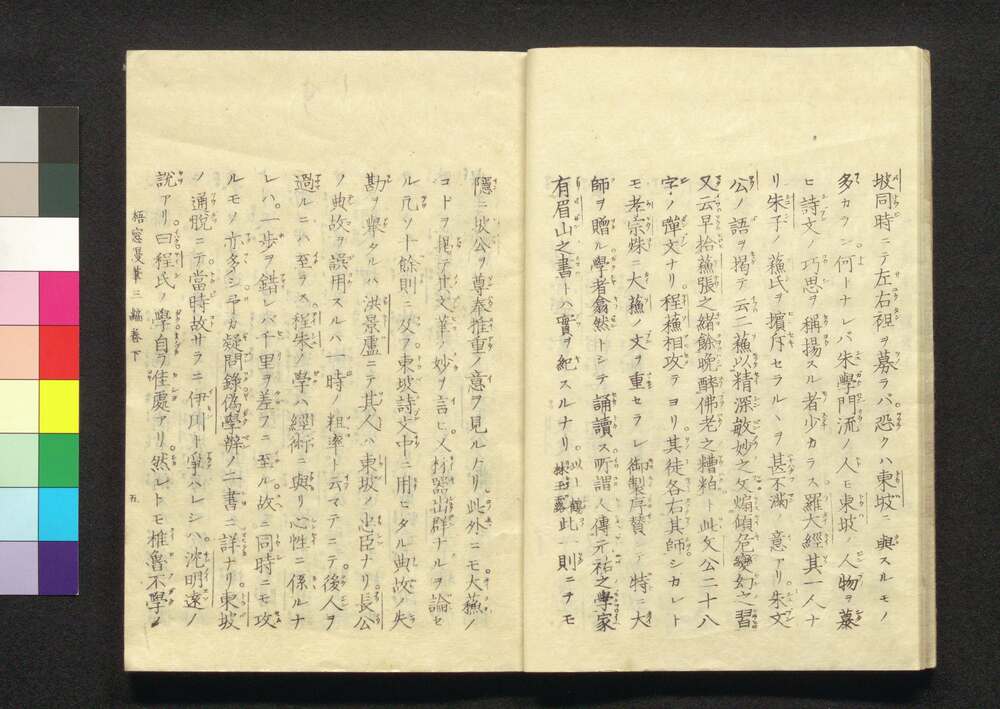 坡同時ニテ左右袒ヲ募ラバ恐クハ東坡ニ與スルモノ
多カラン何トナレバ朱學門流ノ人モ東坡ノ人物ヲ慕
ヒ詩文ノ巧思ヲ稱揚スル者少カラス羅大經其一人ナ
リ朱子ノ蘇氏ヲ擯斥セラルヽヲ甚不滿ノ意アリ朱文
公ノ語ヲ揭テ云二蘇以精深敏妙之文煽傾危變幻之習
又云早拾蘇張之緒餘晩醉佛老之糟粕ト此文公二十八
字ノ彈文ナリ程蘇相攻テヨリ其徒各右其師シカレト
モ孝宗殊ニ大蘇ノ文ヲ重セラレ御製序賛ノ特ニ大
師ヲ贈ル學者翕然トシテ誦讀ス所謂人傳元祐之學家
有眉山之書トハ實ヲ紀スルナリ以上鶴林玉露此一則ニヲモ
隱ニ坡公ヲ尊奉推重ノ意ヲ見ルナリ此外ニモ大蘇ノ
コトヲ揭テ其文華ノ妙ヲ言ヒ人材器出群ナルヲ論セ
ル凡ソ十餘則ニ及フ東坡詩文中ニ用ヒタル典故ノ失
勘ヲ擧タルハ洪景盧ニテ其人ハ東坡ノ忠臣ナリ長公
ノ典故ヲ誤用スルハ一時ノ粗率ト云マテニテ後人ヲ
過ルニハ至ラス程朱ノ學ハ經術ニ與リ心性ニ係ルナ
レハ一步ヲ錯レバ千里ヲ差フニ至ル故ニ同時ニモ攻
ルモノ亦多シ予カ疑問錄僞學辨ノ二書ニ詳ナリ東坡
ノ通脫ニテ當時故サラニ伊川ト爭ハレシハ沈明遠ノ
說アリ曰程氏ノ學自ラ佳處アリ然レトモ椎魯不學ノ
梧窓漫筆三編卷下
五